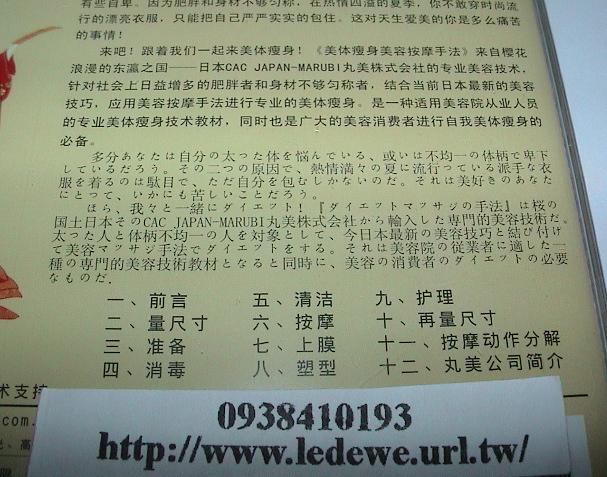 有些自卑。因为肥胖和身材不够匀称，在热情四溢的夏季，你不敢穿时尚流
行的漂亮衣服，只能把自己严严实实的包住。这对天生爱美的你是多么痛苦
的事情！
来吧！跟着我们一起来美体瘦身！《美体瘦身美容按摩手法》来自樱花
浪漫的东瀛之国——日本CAC JAPAN-MARUBI丸美株式会社的专业美容技术，
针对社会上日益增多的肥胖者和身材不够匀称者，结合当前日本最新的美容
技巧，应用美容按摩手法进行专业的美体瘦身。是一种适用美容院从业人员
的专业美体瘦身技术教材，同时也是广大的美容消费者进行自我美体瘦身的
必备。
多分あなたは自分の太った体を悩んでいる、或いは不均一の体柄で卑下
しているだろう。その二つの原因で、熱情満々の夏に流行っている派手な衣
服を着るのは駄目で、ただ自分を包むしかないのだ。それは美好きのあなた
にとって、いかにも苦しいことだろう。
ほら、我々と一緒にダイエット！『ダイエットマッサジの手法』は桜の
国土日本そのCAC JAPAN-MARUBI丸美株式会社から輸入した専門的美容技術だ。
太った人と体柄不均一の人を対象として、今日本最新の美容技巧と結び付け
て美容マッサジ手法でダイエットをする。それは美容院の従業者に適した一
種の専門的美容技術教材となると同時に、美容の消費者のダイエットの必要
なものだ.
一、前言 五、清洁 九、护理
二、量尺寸 六、按摩 十、再量尺寸
三、准备 七、上膜 十一、按摩动作分解
四、消毒 八、塑型 十二、丸美公司简介
术支持
com.
0938410193
http://www.ledewe.url.tw/